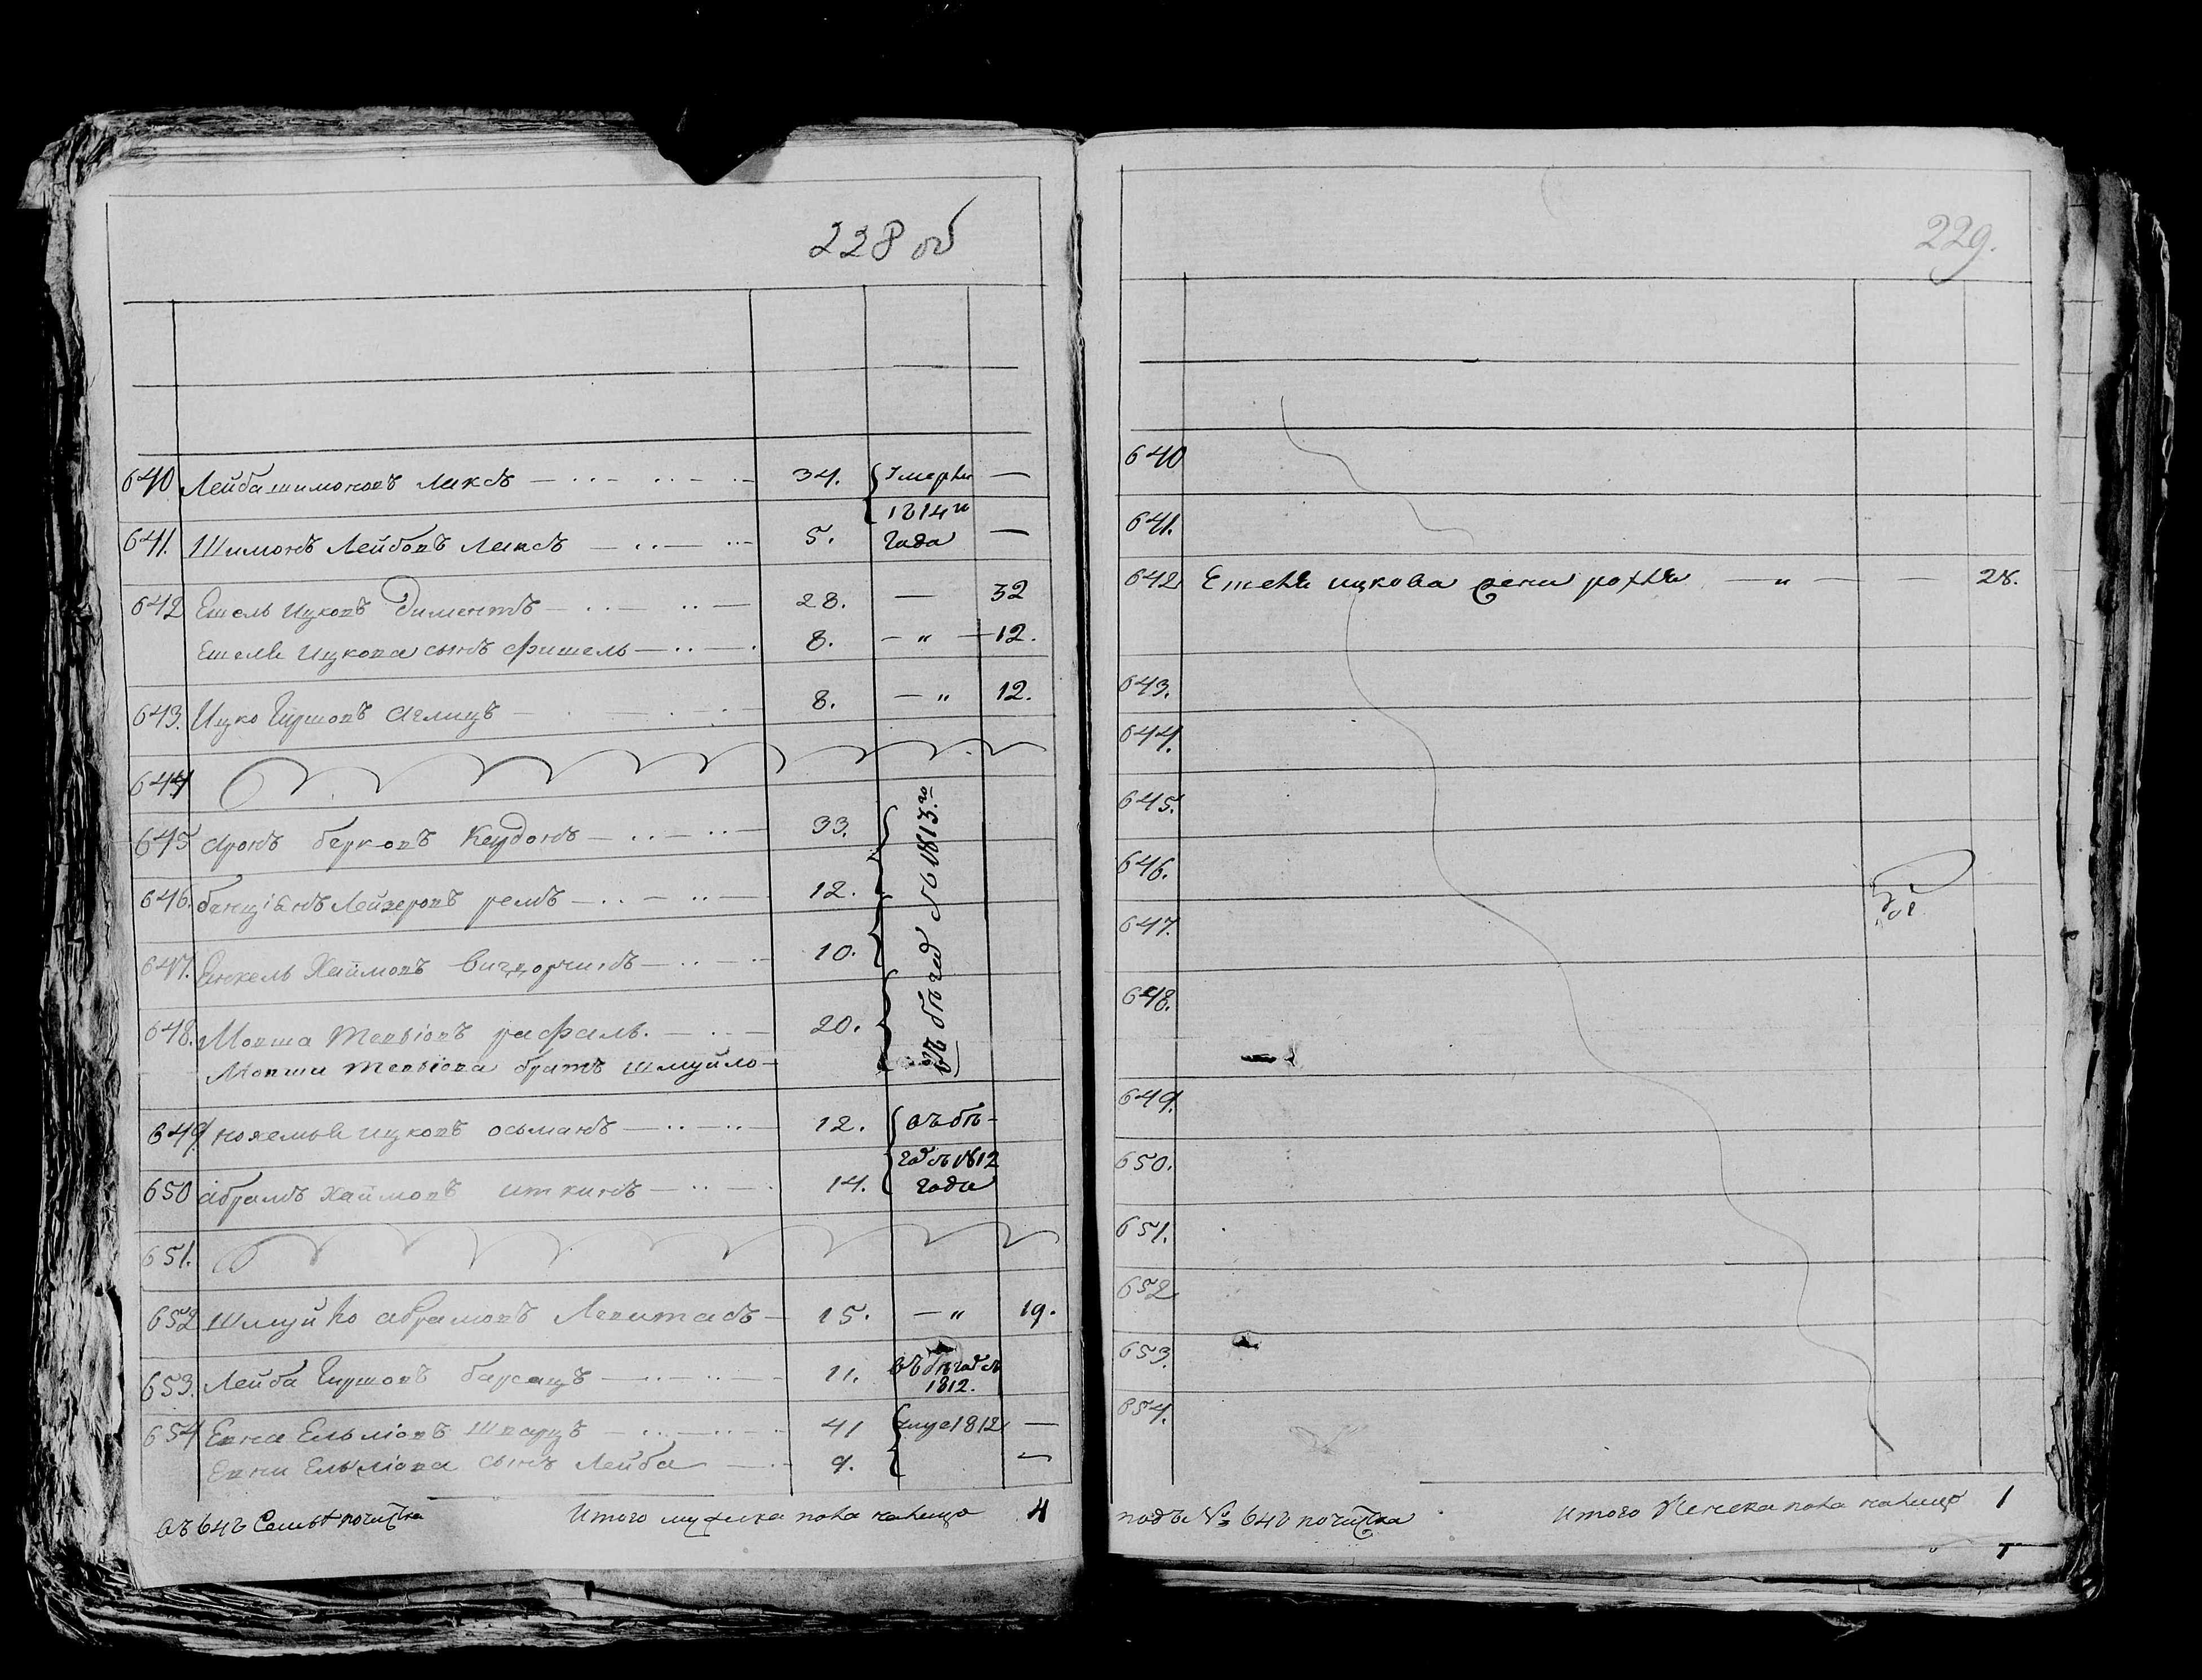 228 об
640 Лейба шимоновъ Ликсъ 34. Умерли —
1814го
641. Шимонъ Лейбовъ Ликсъ 5. Года —
642 Ешель Ицковъ Диментъ 28. — 32
Ешеля Ицкова сынъ Фишель 8. — " — 12.
643. Ицко Гиршовъ 8. — " 12.
644
645 Аронъ Берковъ 33.
въ бѣгах съ 1813го
646. Лейзеровъ 12.
647. Янкель Хаимовъ 10.
648. Мовша Тевьіовъ рафаль. 20.
Мовши Тевьіова братъ Шмуйло
649 Ицковъ осьманъ 12. въ бѣ-
гах съ 1812
650 Абрамъ Хаимовъ иткинъ 14. года
651.
652 Шмуйло Абрамовъ Левитасъ 15. — " 19.
653. Лейба Гиршовъ 11. въ бѣгах съ
1812.
654 Ельміовъ Шварцъ 41 1812 —
Ельміова сынъ Лейба 9. —
Итого мужеска пола налицо 4
229.
640
641.
642 Ешеля ицкова жена рохля — " — — 28.
643.
644.
645.
646.
647.
648.
649.
650.
651.
652
653.
654.
подъ № 642 почистка Итого Женска пола налицо 1